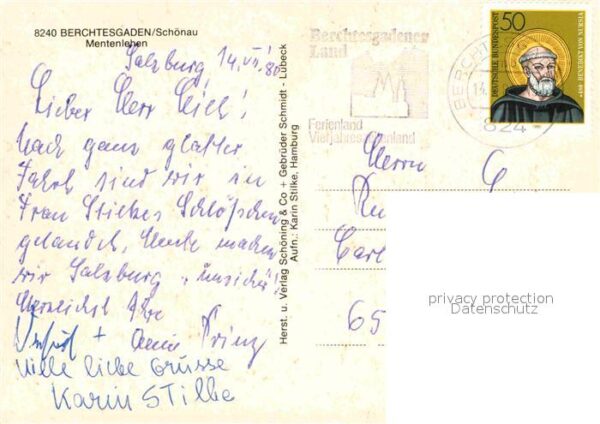 8240 BERCHTESGADEN/Schönau
Mentenlehen
Salzburg, 14.VI.80
Lieber Herr
Nach ganz glatter
Fahrt sind wir in
Frau Stilkes Schlößchen
gelandet, Heute machen
wir Salzburg "unsicher"!
Herzlichst Ihre
+ Prinz
Viele liebe Grüsse
Karin Stilke
Herst. u. Verlag Schöning & Co + Gebrüder Schmidt - Lübeck
Aufn.: Karin Stilke, Hamburg
Berchtesgadener
Land
Ferienland
824
50
DEUTSCHE BUNDESPOST
BENEDIKT VON NURSIA
Herrn
65
privacy protection
Datenschutz